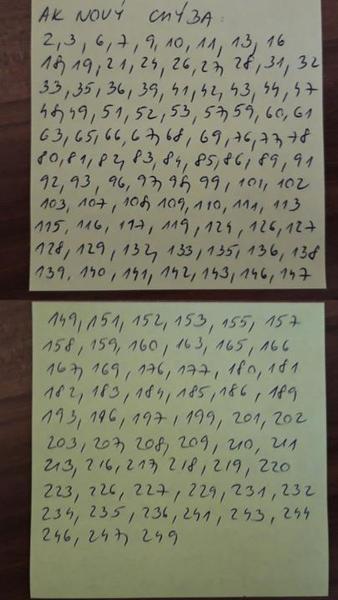 AK NOVÝ CHÝBA:
2, 3, 6, 7, 9, 10, 11, 13, 16
18, 19, 21, 24, 26, 27, 28, 31, 32
33, 35, 36, 39, 41, 42, 43, 44, 47
48, 49, 51, 52, 53, 57, 59, 60, 61
63, 65, 66, 67, 68, 69, 76, 77, 78
80, 81, 82, 83, 84, 85, 86, 89, 91
92, 93, 96, 97, 98, 99, 101, 102
103, 107, 108, 109, 110, 111, 113
115, 116, 117, 119, 124, 126, 127
128, 129, 132, 133, 135, 136, 138
139, 140, 141, 142, 143, 146, 147
149, 151, 152, 153, 155, 157
158, 159, 160, 163, 165, 166
167, 169, 176, 177, 180, 181
182, 183, 184, 185, 186, 189
193, 196, 197, 199, 201, 202
203, 207, 208, 209, 210, 211
213, 216, 217, 218, 219, 220
223, 226, 227, 229, 231, 232
234, 235, 236, 241, 243, 244
246, 247, 249